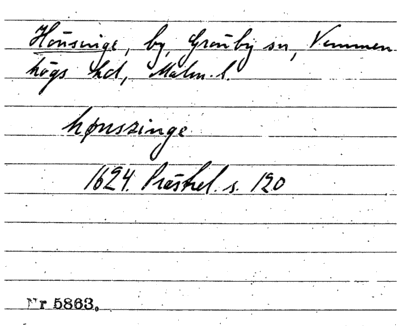 Hönsinge, by, Grönby sn, Vemmen
högs hd, Malm. l.
hønszinge
1624. Præstrel. s. 120
Nr 5863.